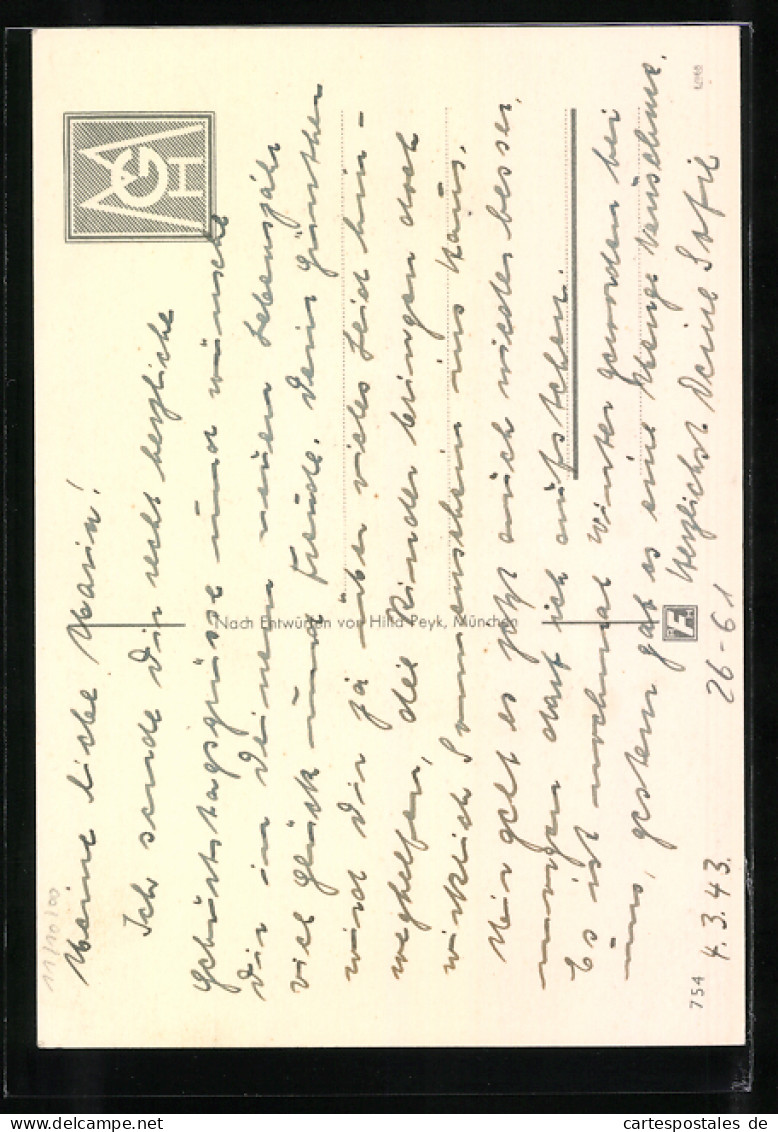 Meine liebe Maria!
Ich sende Dir recht herzliche
Geburtstagsgrüsse und wünsche
Dir in Deinem neuen Lebensjahr
viel Glück und Freude. Dein Günther
wird Dir ja über vieles Leid hin-
weghelfen, die Kinder bringen doch
wirklich Sonnenschein ins Haus.
Mir geht es jetzt auch wieder besser,
morgen darf ich aufstehen.
Es ist nochmal Winter geworden bei
uns, gestern gab es eine Menge Neuschnee.
Herzlichst Deine
4.3.43.
26-61
Nach Entwürfen von Hilla Peyk, München
754
MGH
11/10700
cartespostales de